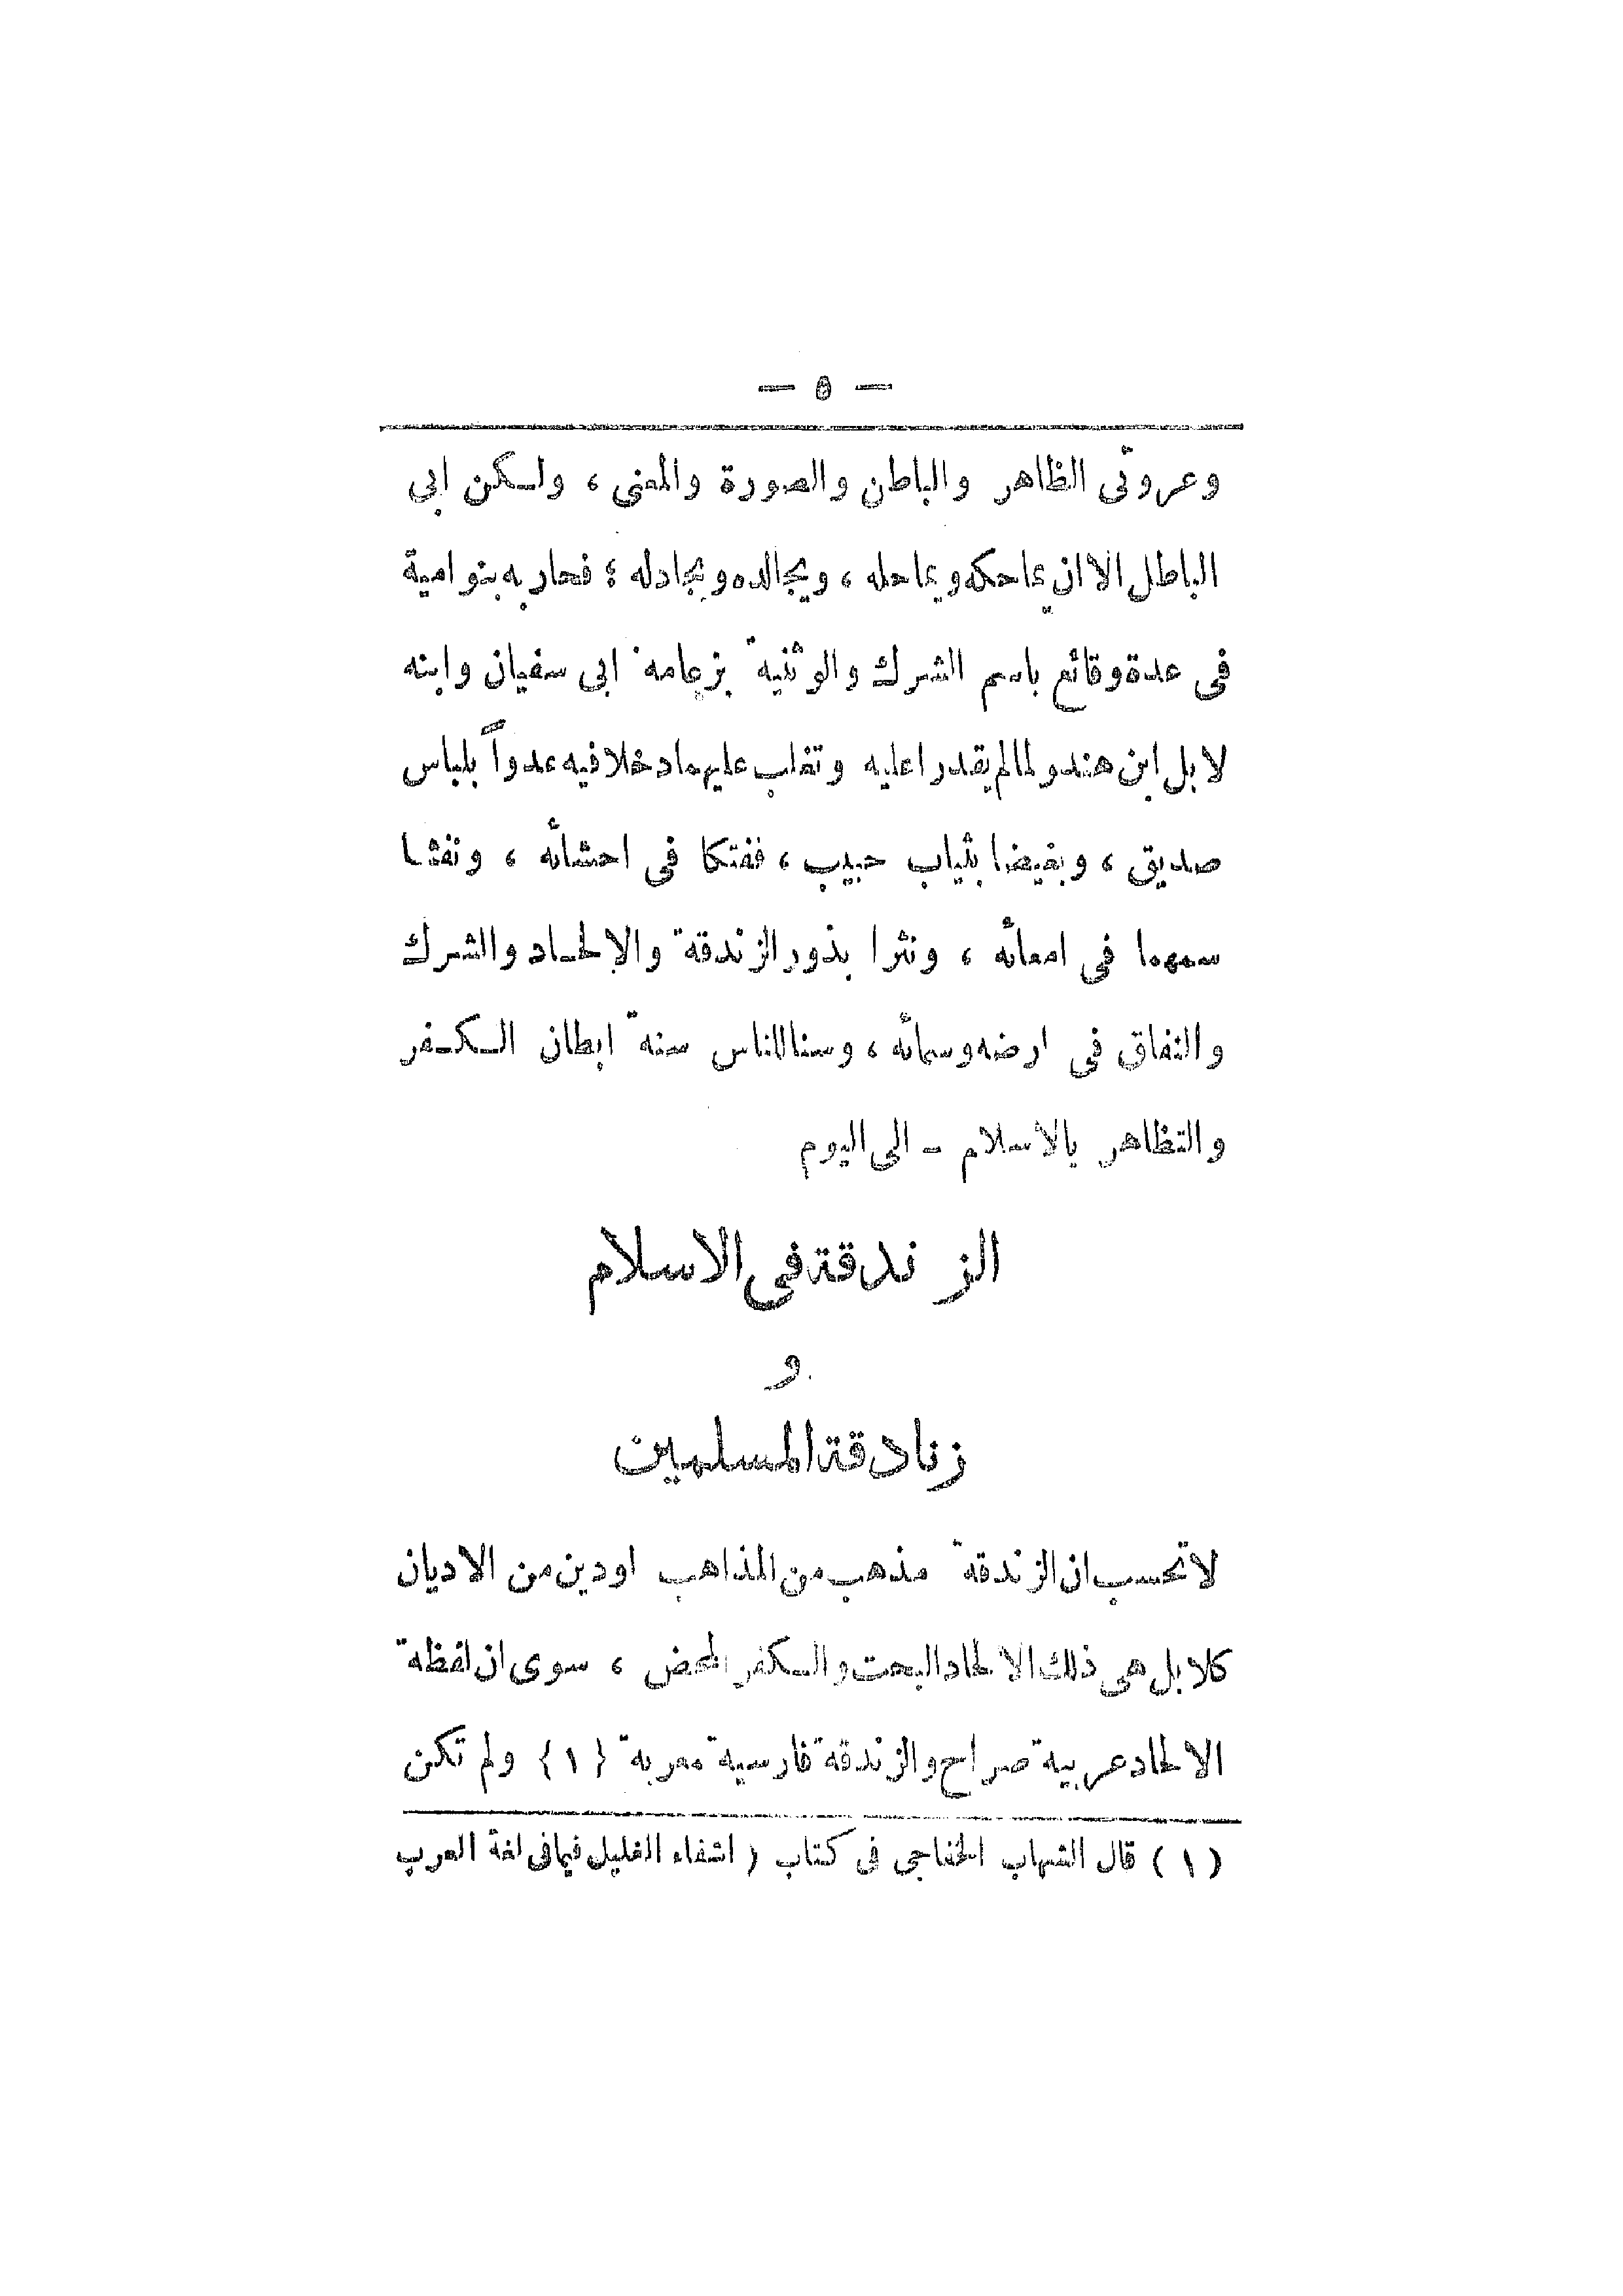 — ٥ —
وعروتى الظاهر والباطن والصورة والمعنى ، ولكن ابى
الباطل الا ان يماحكه ويماحله ، ويجالده ويجادله ؛ فحاربه بنو امية
فى عدة وقائع باسم الشرك والوثنية بزعامة ابى سفيان وابنه
لا بل ابن هند ولما لم يقدرا عليه وتغلب عليهما دخلا فيه عدواً بلباس
صديق ، وبغيضا بثياب حبيب ، ففتكا فى احشائه ، ونفثا
سمهما فى امعائه ، ونثرا بذور الزندقة والالحاد والشرك
والنفاق فى ارضه وسمائه ، وسنا للناس سنة ابطان الكفر
والتظاهر بالاسلام - الى اليوم
الزندقة فى الاسلام
و
زنادقة المسلمين
لا تحسب ان الزندقة مذهب من المذاهب او دين من الاديان
كلا بل هى ذلك الالحاد البحت والكفر المحض ، سوى ان لفظة
الالحاد عربية صراح والزندقة فارسية معربة {١} ولم تكن
(١) قال الشهاب الخفاجى فى كتاب ( اشفاء الغليل فيما فى لغة العرب